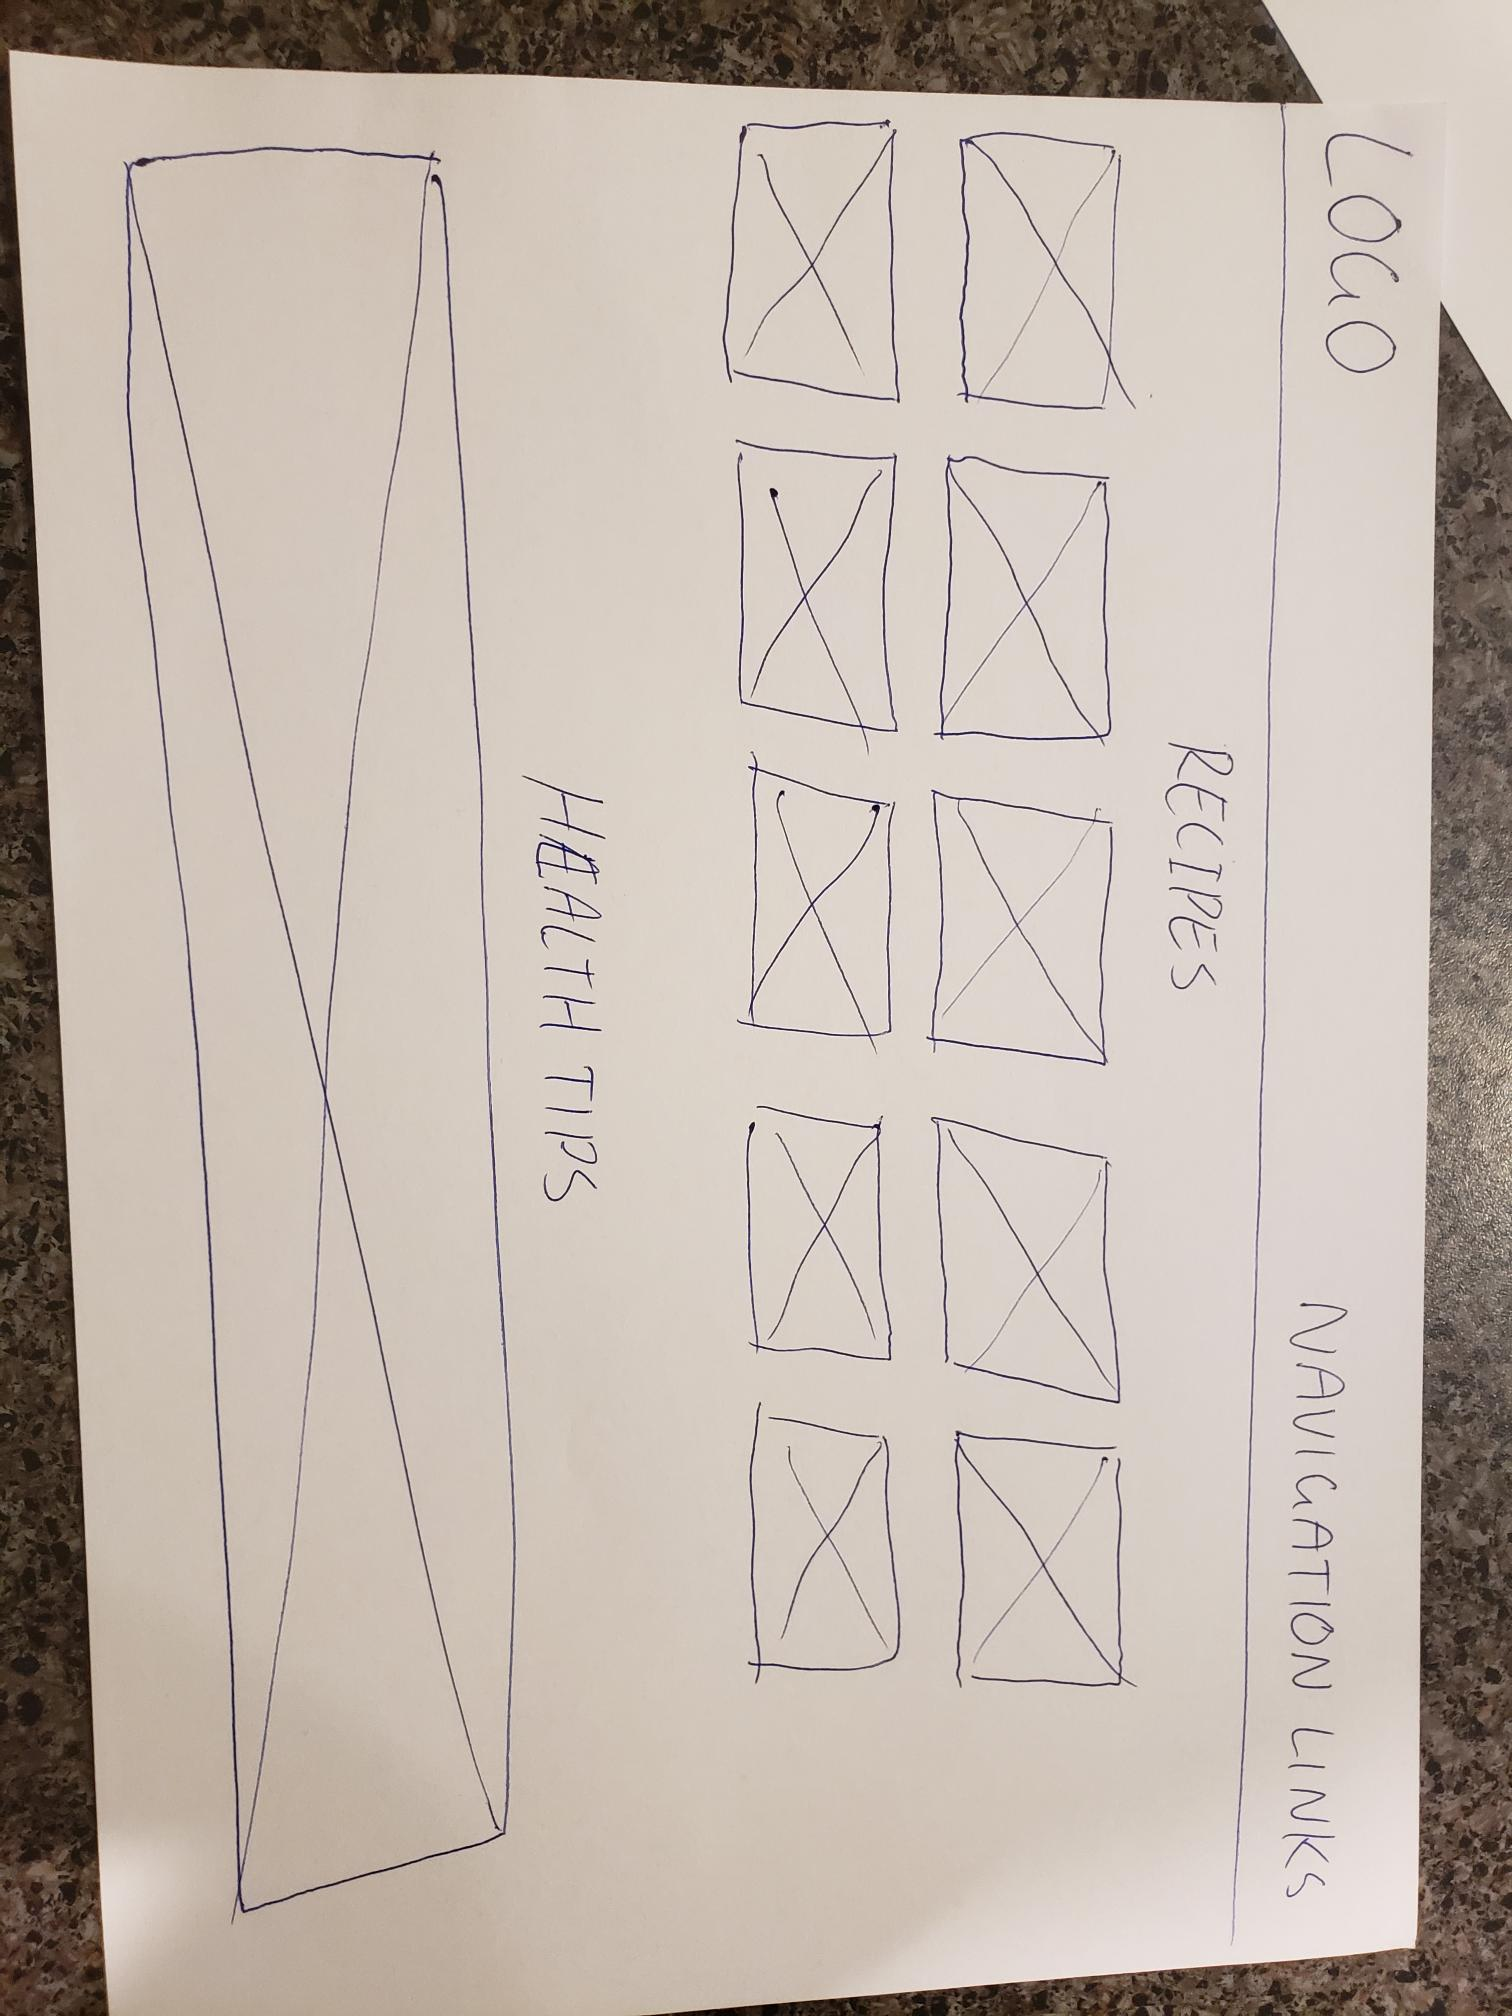 LOGO
NAVIGATION LINKS
RECIPES
HEALTH TIPS